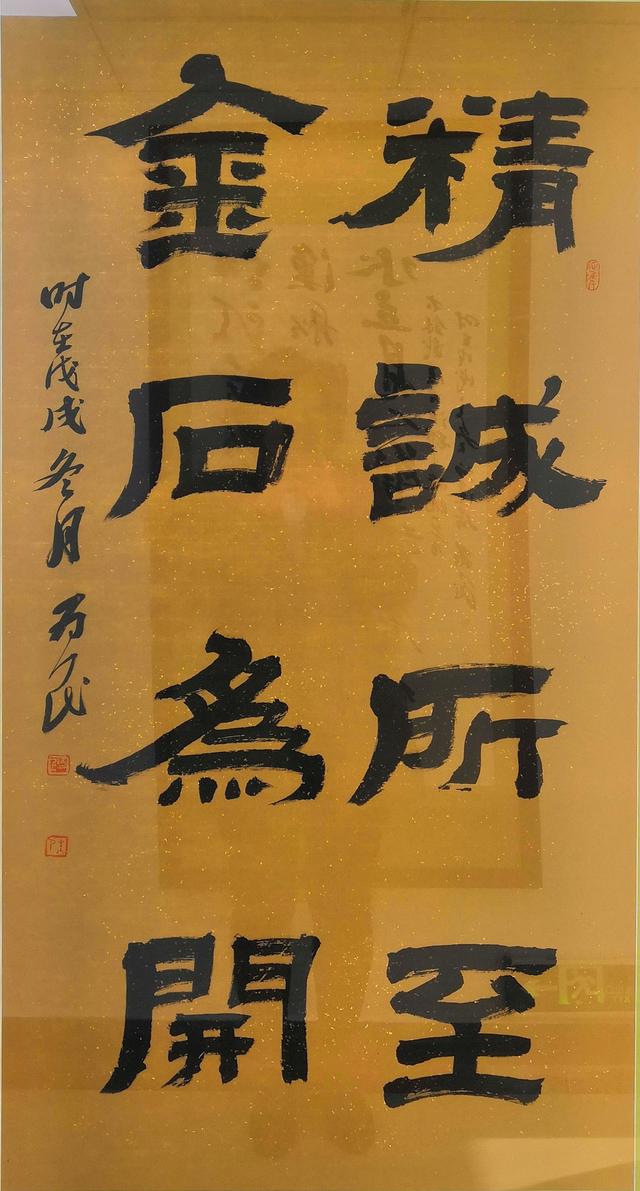 精誠所至
金石為開
时在戊戌冬月